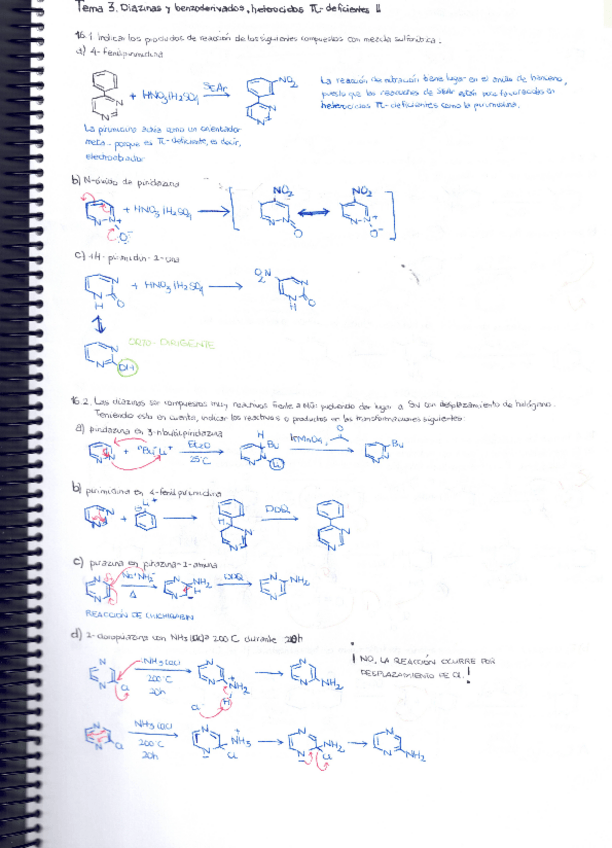 Tema 3. Diazinas y benzoderivados, heterociclos π-deficientes II
16.1 Indicar los productos de reacción de los siguientes compuestos con mezcla sulfonítrica.
a) 4-fenilpirimidina
+ HNO3/H2SO4 SEAr NO2
La reacción de nitración tiene lugar en el anillo de benceno,
puesto que las reacciones de SEAr están poco favorecidas en
heterociclos π-deficientes como la pirimidina.
La pirimidina actúa como un orientador
meta- porque es π-deficiente, es decir,
electroatractor
b) N-óxido de piridazina
+ HNO3/H2SO4 NO2 NO2
c) 1H-pirimidin-2-ona
+ HNO3/H2SO4 O2N
ORTO-DIRIGENTE
OH
16.2. Las diazinas son compuestos muy reactivos frente a Nü: pudiendo dar lugar a SN con desplazamiento de halógeno.
Teniendo esto en cuenta, indicar los reactivos o productos en las transformaciones siguientes:
a) piridazina en 3-nbutilpiridazina
+ nBu- Li+ Et2O 25ºC H Bu Li KMnO4, Bu
b) pirimidina en 4-fenilpirimidina
+ Li+ H DDQ
c) pirazina en pirazina-2-amina
Na+NH2- Δ NH2 H DDQ NH2
REACCIÓN DE CHICHIBABIN
d) 2-cloropirazina con NH3 a 200ºC durante 20h
Cl NH3 200ºC 20h NH2 H Cl- NH2
¡NO, LA REACCIÓN OCURRE POR
DESPLAZAMIENTO DE Cl!
Cl NH3 200ºC 20h NH3 Cl NH2 Cl NH2